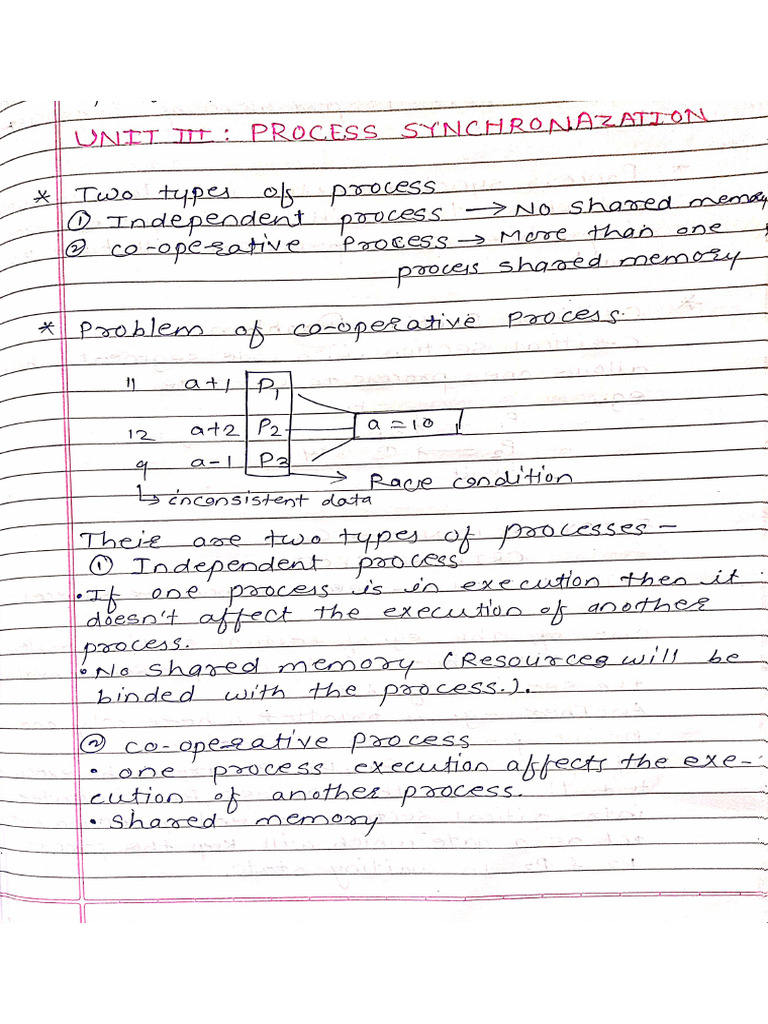 UNIT III : PROCESS SYNCHRONAZATION
* Two types of process
① Independent process → No shared memory
② co-operative Process → More than one
process shared memory
* Problem of co-operative Process.
11 a+1 P1
12 a+2 P2 a = 10
9 a-1 P3
→ Race condition
↳ inconsistent data
Their are two types of processes -
① Independent process
• If one process is in execution then it
doesn't affect the execution of another
process.
• No shared memory (Resources will be
binded with the process.).
② co-operative process
• one process execution affects the exe-
cution of another process.
• shared memory